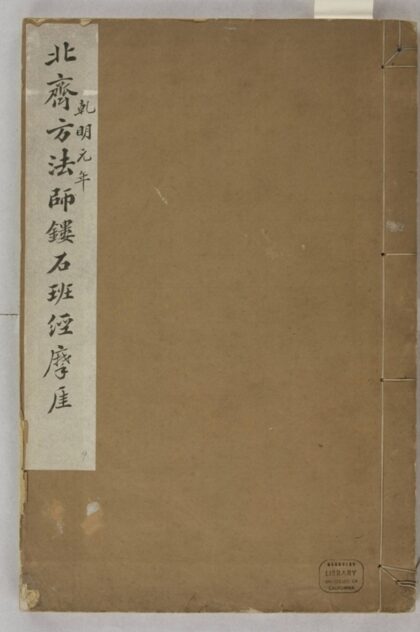 北齊方法師鏤石班經摩厓
乾明元年
LIBRARY
CALIFORNIA